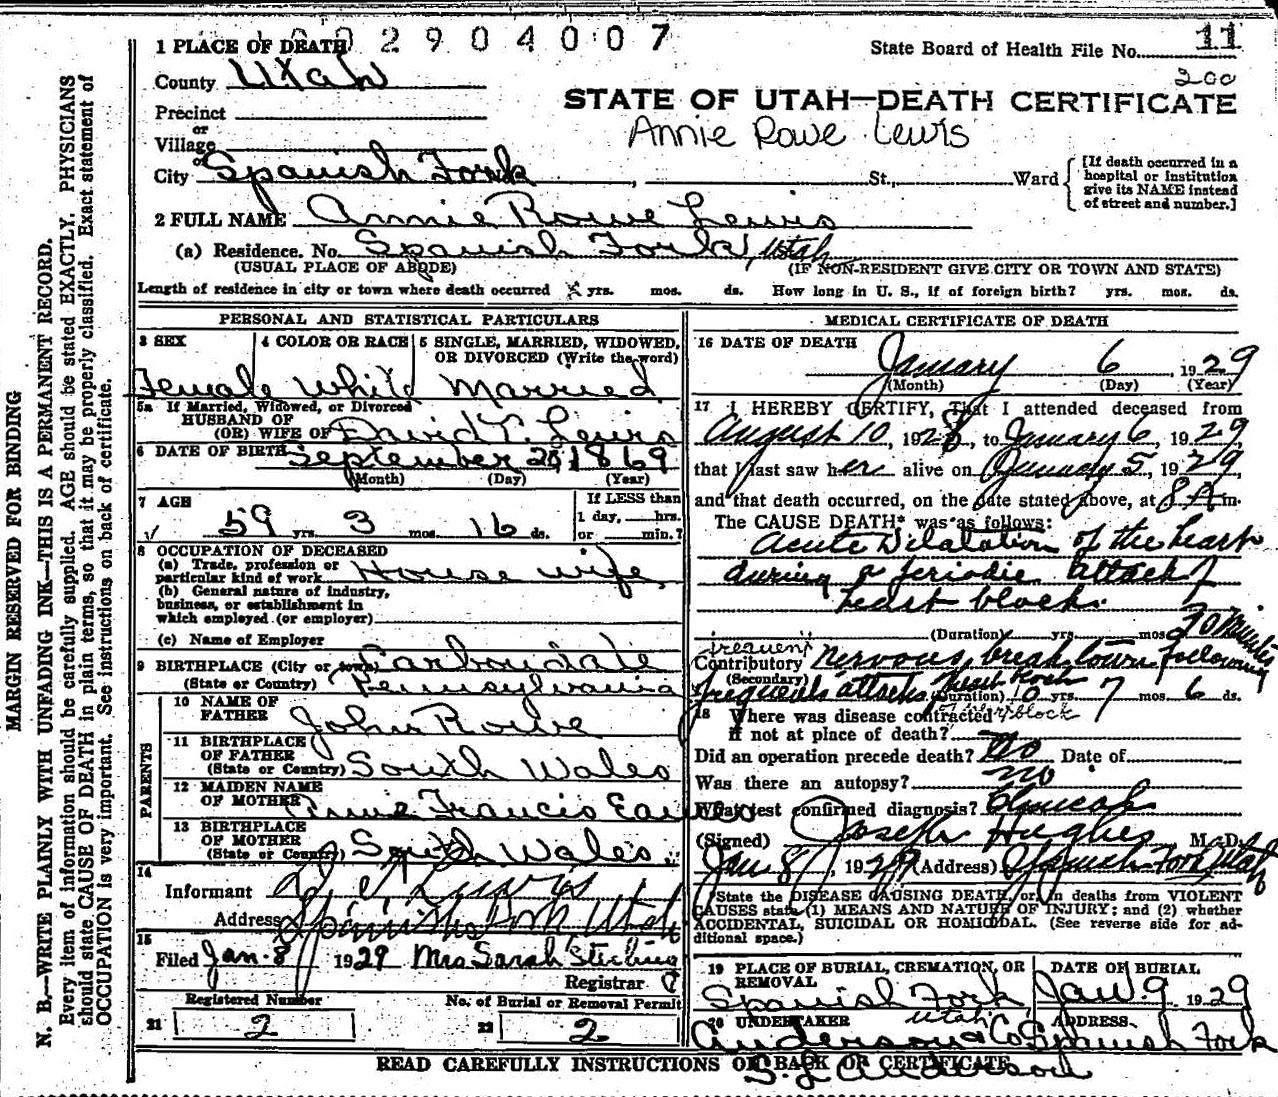 2904007
State Board of Health File No. 11
200
1 PLACE OF DEATH
County Utah
STATE OF UTAH—DEATH CERTIFICATE
Annie Rowe Lewis
Precinct
or
Village
or
City Spanish Fork, St., Ward
[If death occurred in a
hospital or institution
give its NAME instead
of street and number.]
2 FULL NAME Annie Rowe Lewis
(a) Residence. No. Spanish Fork, Utah
(USUAL PLACE OF ABODE) (IF NON-RESIDENT GIVE CITY OR TOWN AND STATE)
Length of residence in city or town where death occurred yrs. mos. ds. How long in U. S., if of foreign birth? yrs. mos. ds.
PERSONAL AND STATISTICAL PARTICULARS
3 SEX 4 COLOR OR RACE 5 SINGLE, MARRIED, WIDOWED,
OR DIVORCED (Write the word)
Female White Married
5a If Married, Widowed, or Divorced
HUSBAND OF
(OR) WIFE OF David T. Lewis
6 DATE OF BIRTH September 20, 1869
(Month) (Day) (Year)
7 AGE If LESS than
1 day, hrs.
59 yrs. 3 mos. 16 ds. or min.?
8 OCCUPATION OF DECEASED
(a) Trade, profession or
particular kind of work House wife
(b) General nature of industry,
business, or establishment in
which employed (or employer)
(c) Name of Employer
9 BIRTHPLACE (City or town) Carbondale
(State or Country) Pennsylvania
PARENTS
10 NAME OF
FATHER John Rowe
11 BIRTHPLACE
OF FATHER
(State or Country) South Wales
12 MAIDEN NAME
OF MOTHER Francis
13 BIRTHPLACE
OF MOTHER
(State or Country) South Wales
14
Informant Lewis
Address Spanish Fork Utah
15
Filed Jan. 8 1929 Mrs Sarah Sterling
Registrar
Registered Number No. of Burial or Removal Permit
21 2 22 2
MEDICAL CERTIFICATE OF DEATH
16 DATE OF DEATH
January 6, 1929
(Month) (Day) (Year)
17 I HEREBY CERTIFY, That I attended deceased from
August 10, 1928, to January 6, 1929,
that I last saw her alive on January 5, 1929,
and that death occurred, on the date stated above, at 8 A m.
The CAUSE DEATH* was as follows:
Acute Dilatation of the heart
during a periodic attack of
heart block.
(Duration) yrs. mos. 20 Minutes
frequent
Contributory nervous break down following
(Secondary) heart block
frequent attacks (Duration) 0 yrs. 7 mos. 6 ds.
of heart block
18 Where was disease contracted
if not at place of death?
Did an operation precede death? No Date of
Was there an autopsy? no
What test confirmed diagnosis? Clinical
(Signed) Joseph Hughes M. D.
Jan 8, 1929 (Address) Spanish Fork Utah
*State the DISEASE CAUSING DEATH, or in deaths from VIOLENT
CAUSES state (1) MEANS AND NATURE OF INJURY; and (2) whether
ACCIDENTAL, SUICIDAL OR HOMICIDAL. (See reverse side for ad-
ditional space.)
19 PLACE OF BURIAL, CREMATION, OR
REMOVAL DATE OF BURIAL
Spanish Fork Utah Jan. 9 1929
20 UNDERTAKER ADDRESS
Anderson & Co Spanish Fork
S. L. Anderson
READ CAREFULLY INSTRUCTIONS ON BACK OF CERTIFICATE
MARGIN RESERVED FOR BINDING
N. B.—WRITE PLAINLY WITH UNFADING INK—THIS IS A PERMANENT RECORD.
Every item of information should be carefully supplied. AGE should be stated EXACTLY. PHYSICIANS
should state CAUSE OF DEATH in plain terms, so that it may be properly classified. Exact statement of
OCCUPATION is very important. See instructions on back of certificate.